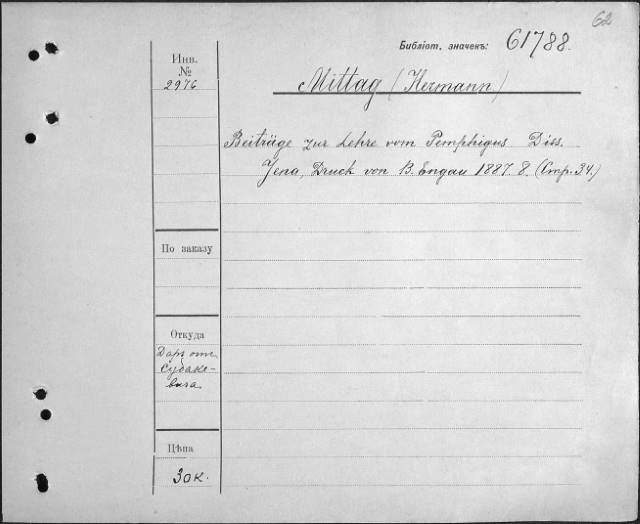 62
Библіот. значекъ: 61788.
Инв.
№
2976
Mittag (Hermann)
Beiträge zur Lehre vom Pemphigus. Diss.
Jena, Druck von B. Engau 1887. 8. (Стр. 34.)
По заказу
Откуда
Даръ от
Судаке-
вича
Цѣна
30к.